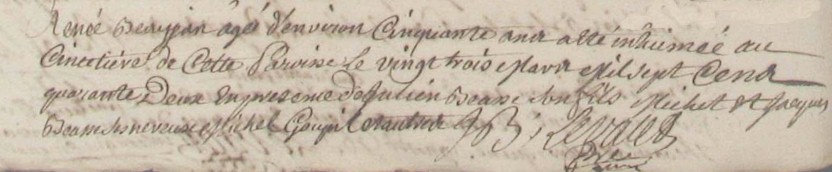 René Beaujan âgé d'environ Cinquante ans a été inhumée au
Cimetiére de Cette Paroisse le vingt trois Mars Mil Sept Cens
quarante Deux En presence de Julien Beau son fils Michel et Jacques
Beau ses neveux Michel Goupil